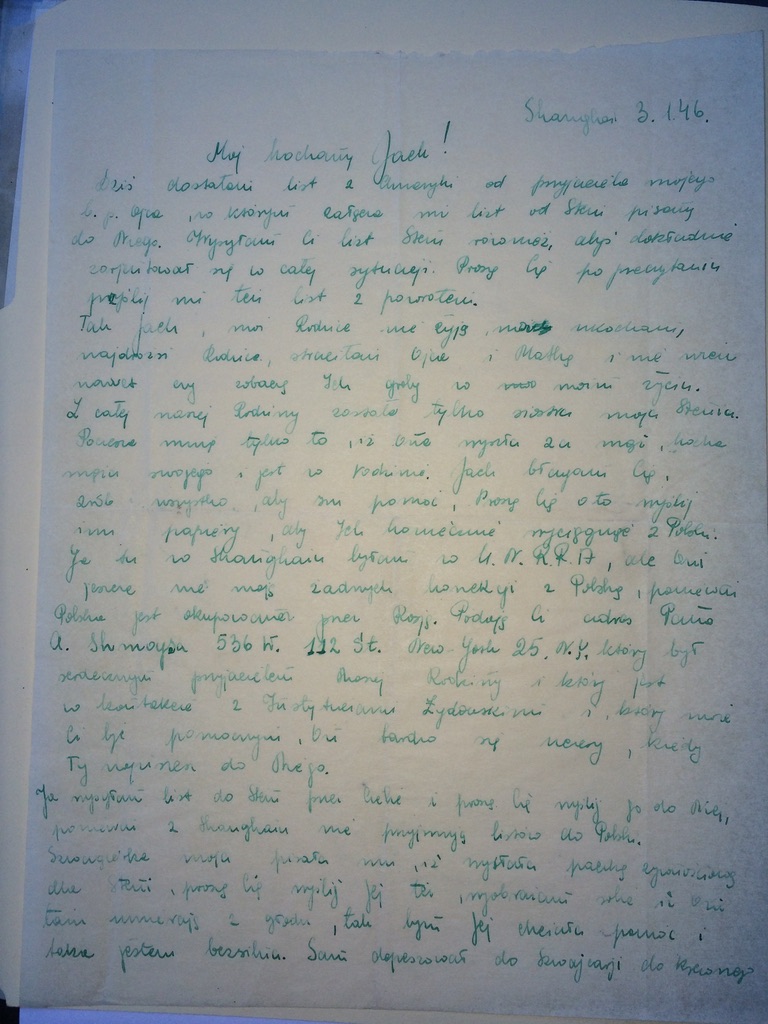 Shanghai 3.1.46.
Mój kochany Jack!
Dziś dostałam list z Ameryki od przyjaciela mojego
b. p. Ojca, w którym załącza mi list od Steni pisany
do Niego. Wysyłam Ci list Steni również, abyś dokładnie
się w całej sytuacji. Proszę Cię po przeczytaniu
prześlij mi ten list z powrotem.
Tak Jack, moi Rodzice nie żyją, ukochani,
najdrożsi Rodzice, straciłam Ojca i Matkę i nie wiem
nawet czy zobaczę Ich groby w moim życiu.
Z całej naszej Rodziny została tylko siostra moja Stenia.
Pociesza mnie tylko to, iż Ona wyszła za mąż, kocha
męża swojego i jest w rodzinie. Jack błagam Cię,
zrób wszystko, aby im pomóc, Proszę Cię o to wyślij
im papiery, aby Ich koniecznie wyciągnąć z Polski.
Ja tu w Shanghaiu byłam w U.N.R.R.A, ale Oni
jeszcze nie mają żadnych koneksji z Polską, ponieważ
Polska jest okupowana przez Rosję. Podaję Ci adres Pana
A. 536 W. 112 St. New-York 25. N.Y. który był
serdecznym przyjacielem Naszej Rodziny i który jest
w kontakcie z Instytucjami Żydowskimi i, który może
Ci być pomocnym, On bardzo się ucieszy, kiedy
Ty napiszesz do Niego.
Ja wysyłam list do Steni przez Ciebie i proszę Cię wyślij go do Niej,
ponieważ z Shanghaiu nie przyjmują listów do Polski.
Szwagierka moja pisała mi, iż wysłała paczkę żywnościową
dla Steni, proszę Cię wyślij Jej też, wyobrażam sobie iż Oni
tam umierają z głodu, tak bym Jej chciała pomóc i
taka jestem bezsilna. Sam depeszował do Szwajcarji do